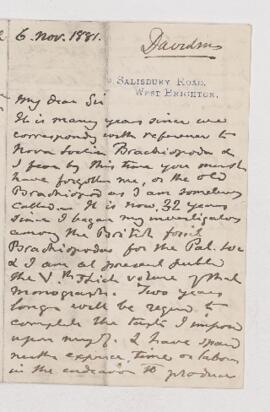 6. Nov. 1881.
Davidson
SALISBURY ROAD,
WEST BRIGHTON.
My dear Sir
It is many years since we
correspond with reference to
Nova Scotia Brachiopoda &
I fear by this time you must
have forgotten me, or the old
Brachiopod as I am sometimes
called. It is now 32 years
since I began my investigations
among the British fossil
Brachiopoda for the Pal. Soc
& I am at present publish
the Vth thick volume of that
monograph. Two years
longer will be requid to
complete the task I impose
upon myself. I have spared
neither expence, time or labour
in the endeavor to produce